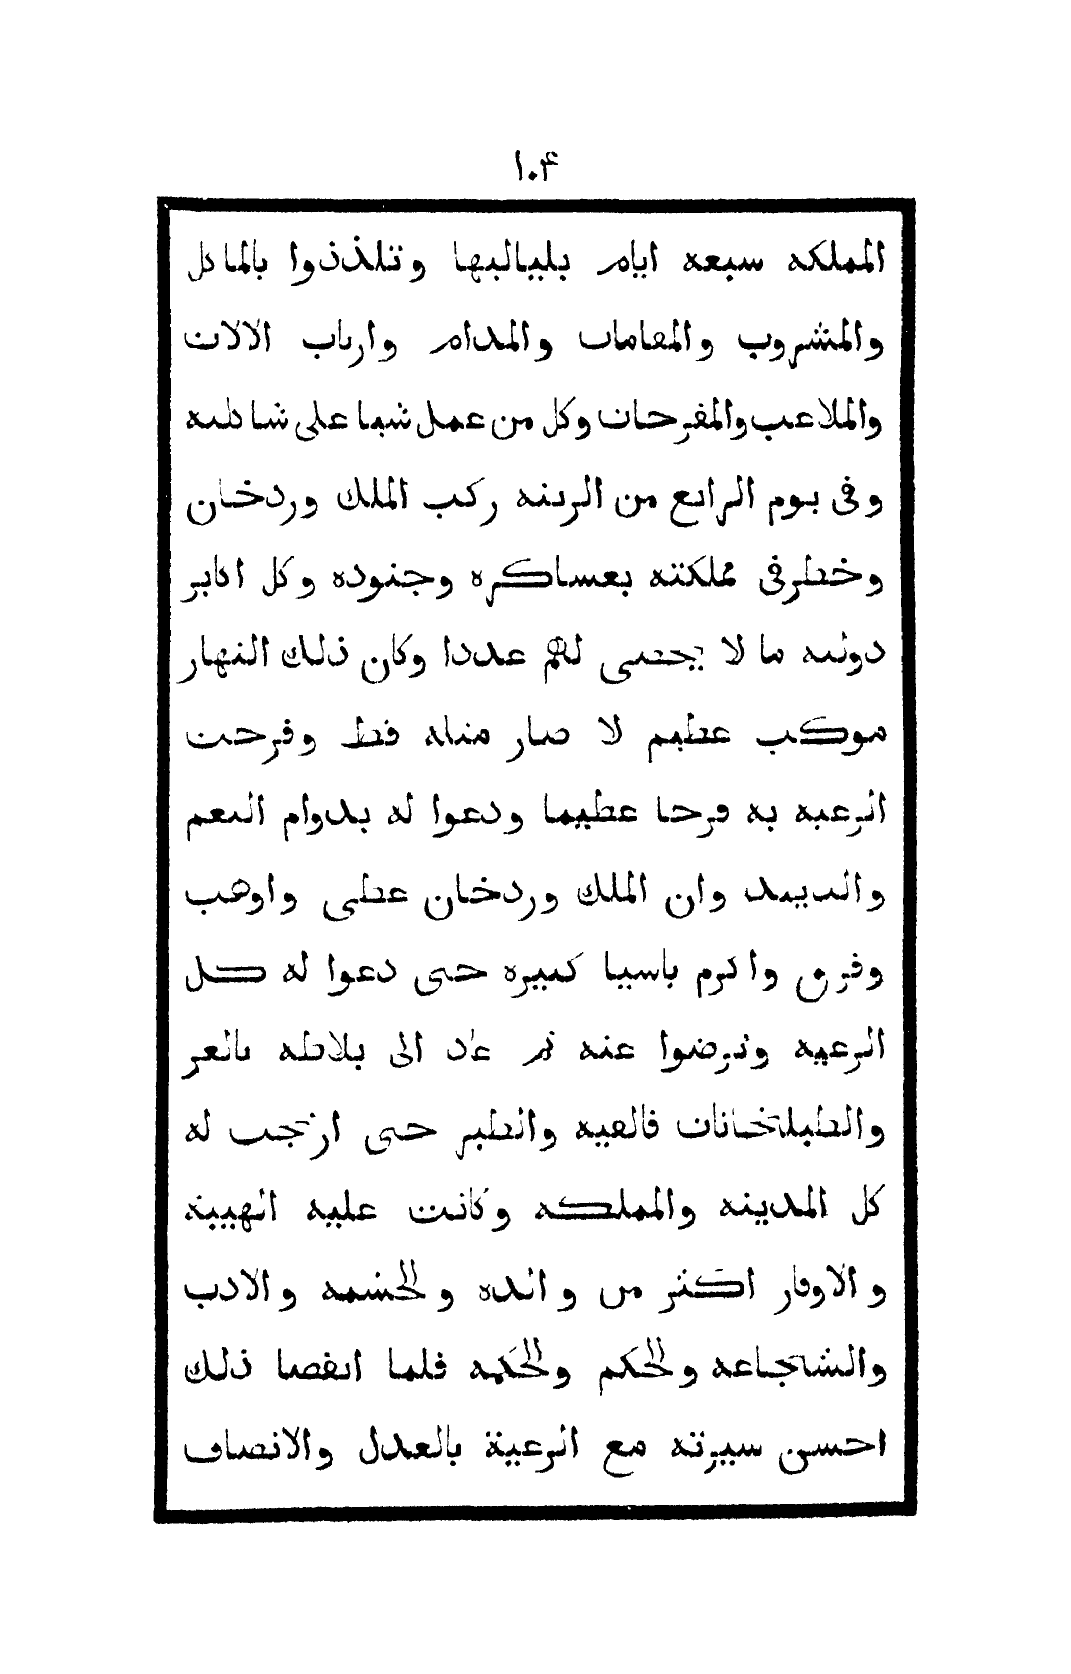 ١٠٤
المملكه سبعه ايام بلياليها وتلذذوا بالماكل
والمشروب والمقامات والمدام وارباب الالات
والملاعب والمفرحات وكل من عمل شيا على شاكلته
وفى يوم الرابع من الزينه ركب الملك وردخان
وخطر فى مملكته بعساكره وجنوده وكل اكابر
دولته ما لا يحصى لهم عددا وكان ذلك النهار
موكب عظيم لا صار مثله قط وفرحت
الرعيه به فرحا عظيما ودعوا له بدوام النعم
وان الملك وردخان عطى واوهب
وفرق واكرم باسيا كبيره حتى دعوا له كل
الرعيه وترضوا عنه ثم عاد الى بلاطه بالعز
والطبلخانات فالقيه والطير حتى ارتجت له
كل المدينه والمملكه وكانت عليه الهيبة
والاوقار اكثر من والده والحشمه والادب
والشجاعه والحكم والحكمه فلما انفصا ذلك
احسن سيرته مع الرعية بالعدل والانصاف